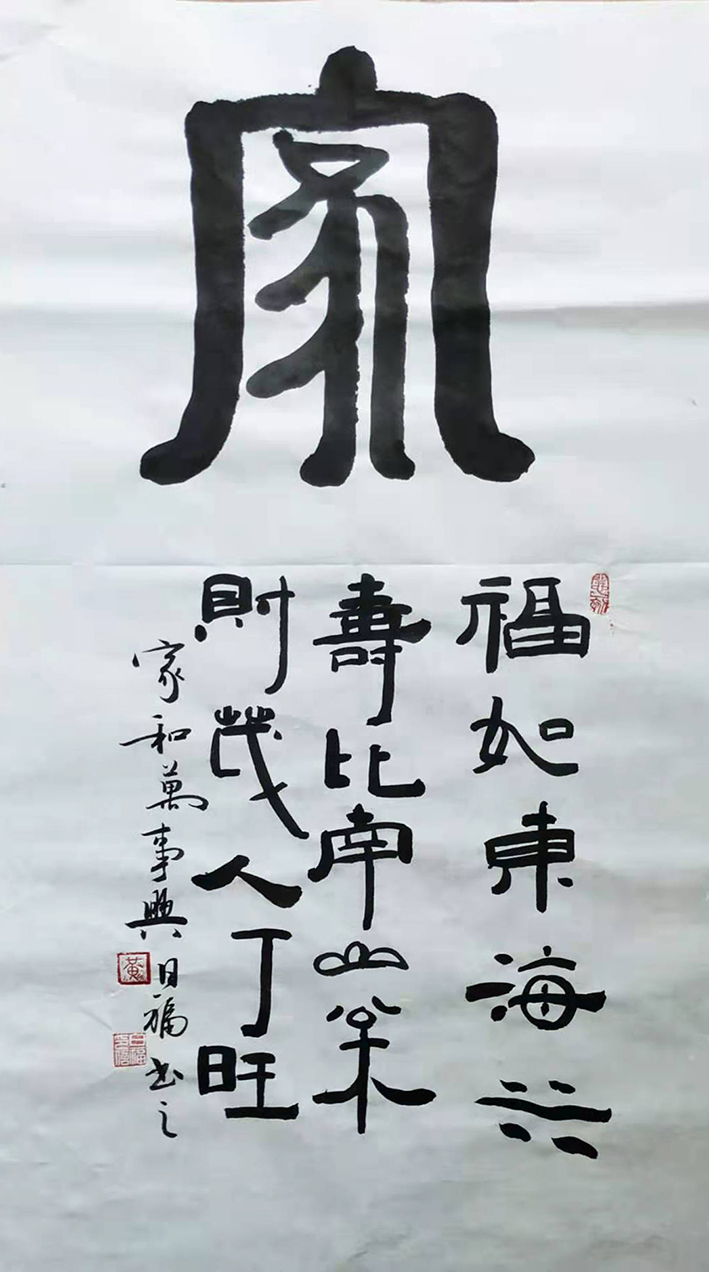 家
福如東海水
壽比南山枩
財茂人丁旺
家和萬事興 日福书之
黄